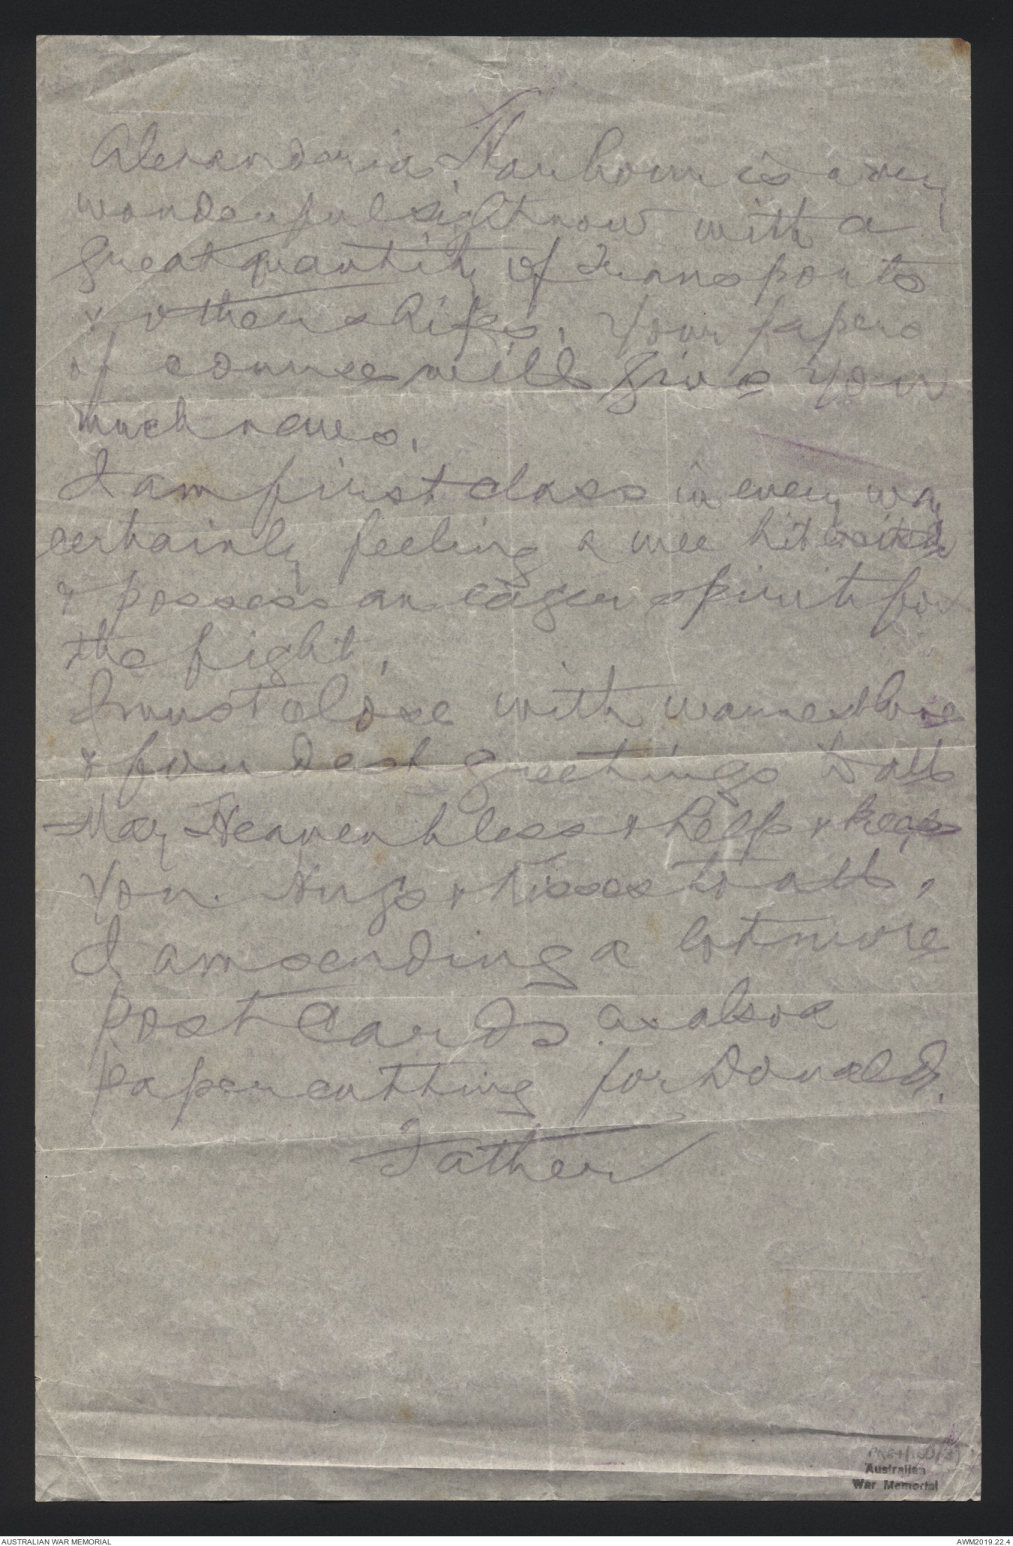 Alexandria Harbour is a very
wonderful sight now with a
great quantity of Transports
& other ships. Your papers
of course will give you
much news.
I am first class in every way
certainly feeling a wee bit excited
& possess an eager spirit for
the fight.
I must close with warmest love
& fondest greetings to all
May Heaven bless & help & keep
you. Hugs & kisses to all,
I am sending a lot more
Post Cards as also a
paper cutting for Donald.
Father
Australian
War Memorial
AUSTRALIAN WAR MEMORIAL
AWM2019.22.4